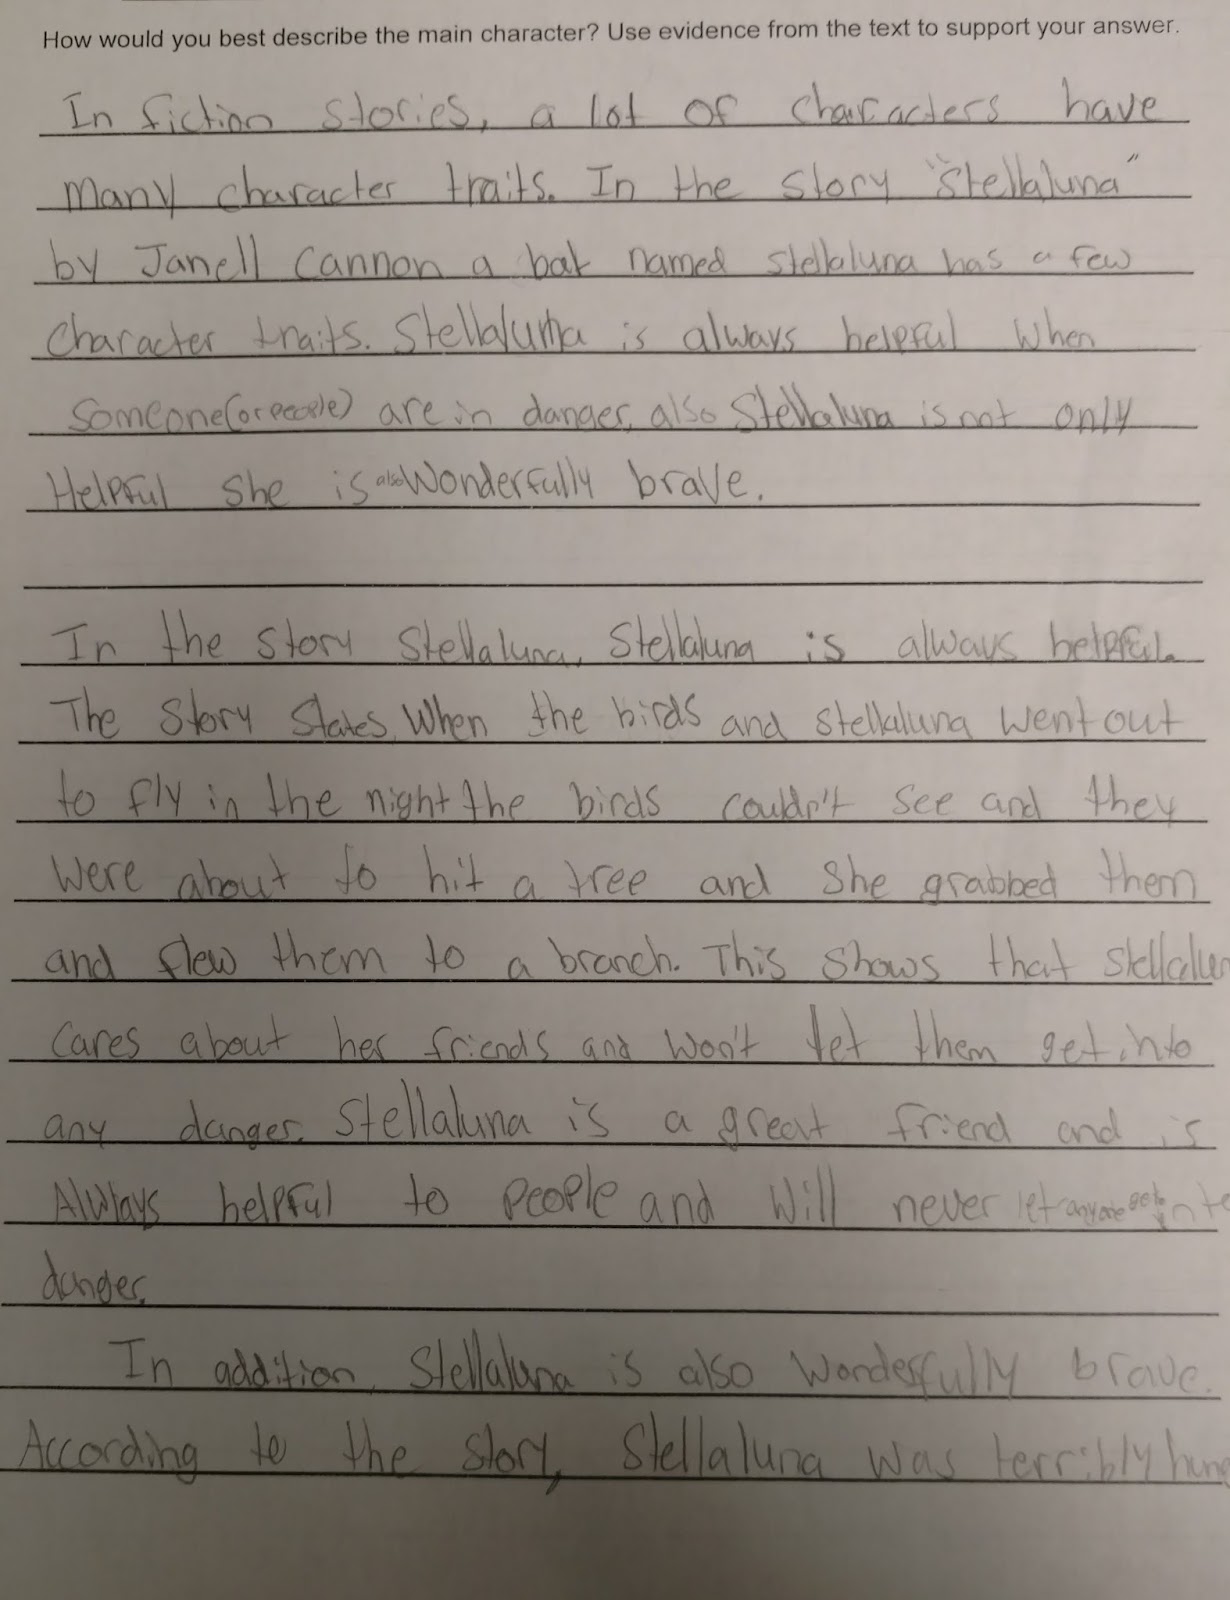 How would you best describe the main character? Use evidence from the text to support your answer.
In fiction stories, a lot of characters have
many character traits. In the story "Stellaluna"
by Janell Cannon a bat named stellaluna has a few
character traits. Stellaluna is always helpful when
someone(or people) are in danger, also Stellaluna is not only
Helpful she is also Wonderfully brave.
In the story Stellaluna, Stellaluna is always helpful.
The story states, When the birds and stellaluna went out
to fly in the night the birds couldn't see and they
were about to hit a tree and she grabbed them
and flew them to a branch. This shows that
cares about her friends and won't let them get into
any danger. Stellaluna is a great friend and is
Always helpful to people and will never let anyone get into
danger.
In addition, Stellaluna is also wonderfully brave.
According to the story, Stellaluna was terribly